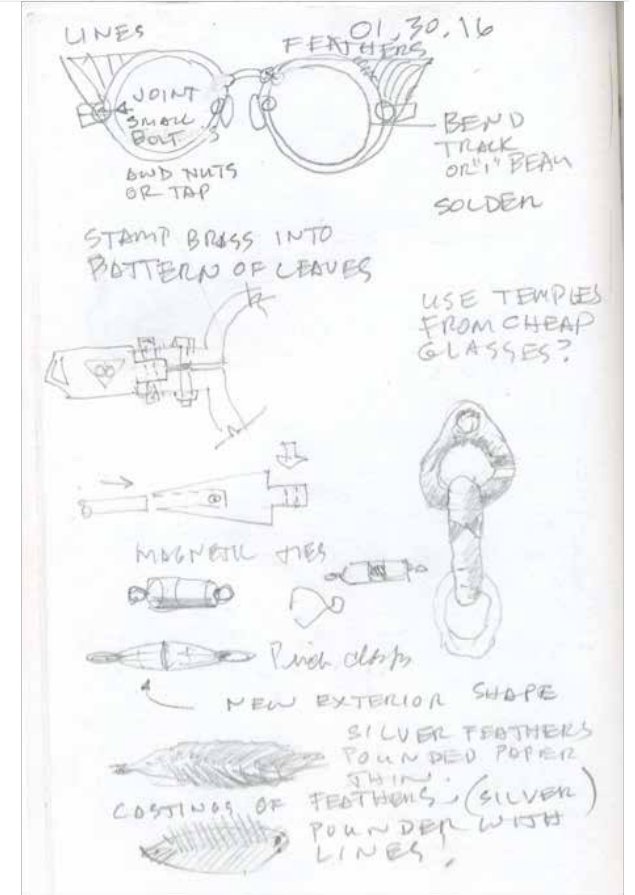 LINES
01.30.16
FEATHERS
JOINT
SMALL
BOLT
AND NUTS
OR TAP
BEND
TRACK
OR "I" BEAM
SOLDER
STAMP BRASS INTO
PATTERN OF LEAVES
USE TEMPLES
FROM CHEAP
GLASSES?
MAGNETIC TIES
clasps
NEW EXTERIOR SHAPE
SILVER FEATHERS
POUNDED PAPER
THIN.
CASTINGS OF FEATHERS (SILVER)
POUNDER WITH
LINES!